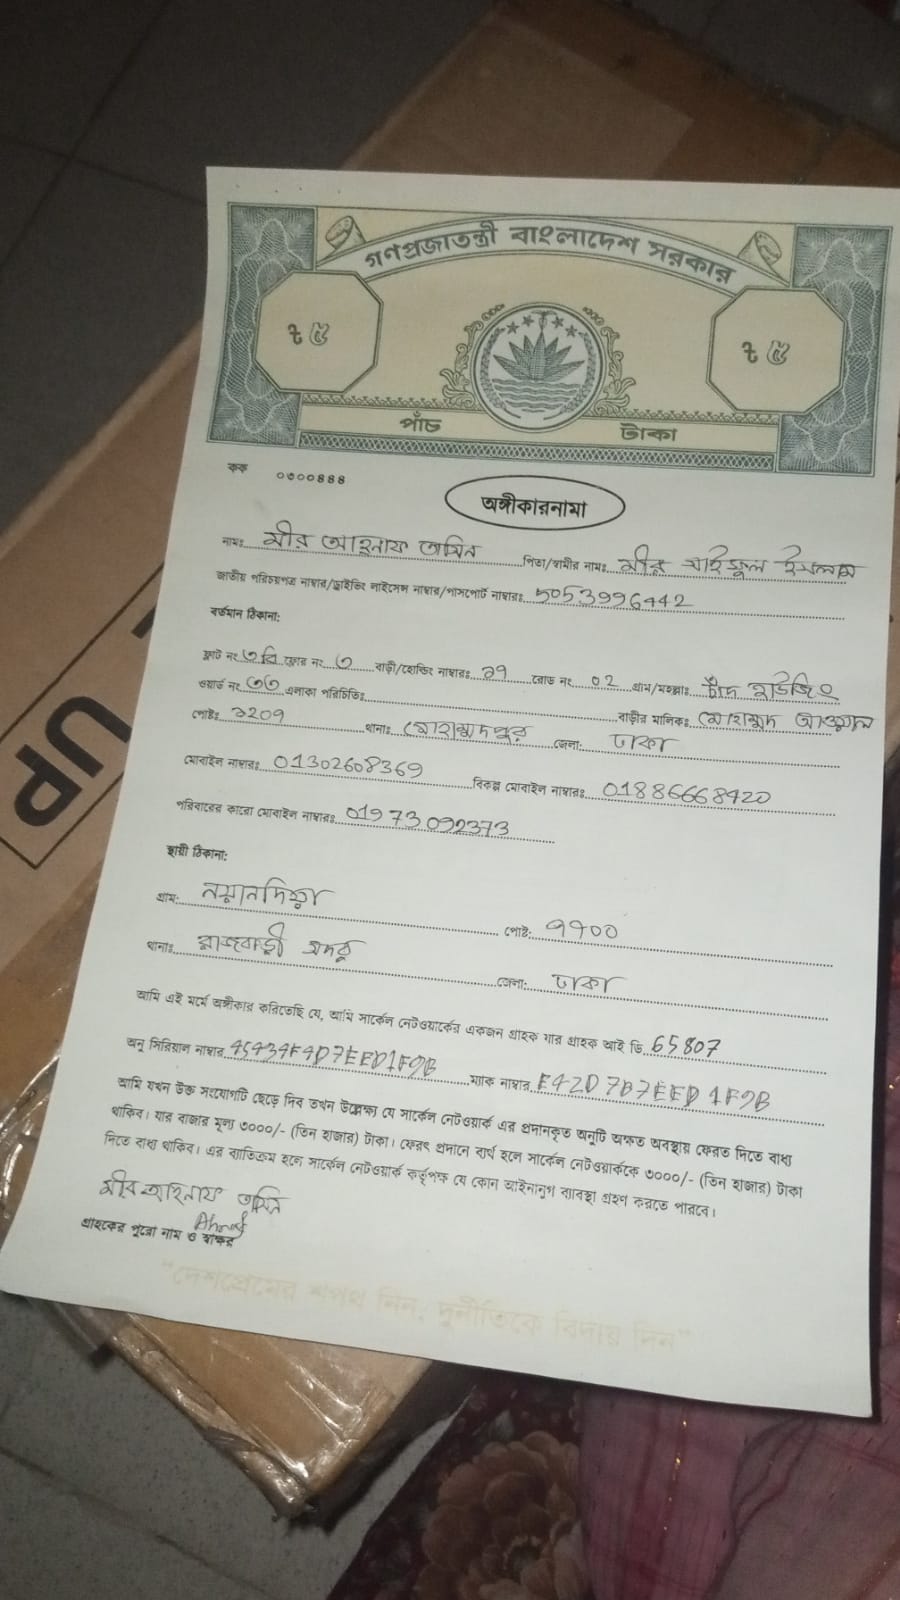 গণপ্রজাতন্ত্রী বাংলাদেশ সরকার
৳ ৫ ৳ ৫
পাঁচ টাকা
কক ০৩০০৪৪৪
অঙ্গীকারনামা
নামঃ মীর আহনাফ তামিন পিতা/স্বামীর নামঃ মীর সাইফুল ইসলাম
জাতীয় পরিচয়পত্র নাম্বার/ড্রাইভিং লাইসেন্স নাম্বার/পাসপোর্ট নাম্বারঃ 5053996442
বর্তমান ঠিকানা:
ফ্লাট নং ৩বি ফ্লোর নং ৩ বাড়ী/হোল্ডিং নাম্বারঃ ১৭ রোড নং 02 গ্রাম/মহল্লাঃ চাঁদ হাউজিং
ওয়ার্ড নং ৩৩ এলাকা পরিচিতিঃ বাড়ীর মালিকঃ মোহাম্মদ আওয়াল
পোষ্টঃ ১২০৭ থানাঃ মোহাম্মদপুর জেলা: ঢাকা
মোবাইল নাম্বারঃ 01302608369 বিকল্প মোবাইল নাম্বারঃ 01886668420
পরিবারের কারো মোবাইল নাম্বারঃ 01973092373
স্থায়ী ঠিকানা:
গ্রাম: নয়ানদিয়া পোষ্ট: ৭৭০০
থানাঃ রাজবাড়ী সদর জেলা: ঢাকা
আমি এই মর্মে অঙ্গীকার করিতেছি যে, আমি সার্কেল নেটওয়ার্কের একজন গ্রাহক যার গ্রাহক আই ডি 65807
অনু সিরিয়াল নাম্বার ম্যাক নাম্বার
আমি যখন উক্ত সংযোগটি ছেড়ে দিব তখন উল্লেক্ষ্য যে সার্কেল নেটওয়ার্ক এর প্রদানকৃত অনুটি অক্ষত অবস্থায় ফেরত দিতে বাধ্য
থাকিব। যার বাজার মূল্য ৩০০০/- (তিন হাজার) টাকা। ফেরৎ প্রদানে ব্যর্থ হলে সার্কেল নেটওয়ার্ককে ৩০০০/- (তিন হাজার) টাকা
দিতে বাধ্য থাকিব। এর ব্যতিক্রম হলে সার্কেল নেটওয়ার্ক কর্তৃপক্ষ যে কোন আইনানুগ ব্যাবস্থা গ্রহণ করতে পারবে।
মীর আহনাফ তামিন
Ahnaf
গ্রাহকের পুরো নাম ও স্বাক্ষর
"দেশপ্রেমের শপথ নিন, দুর্নীতিকে বিদায় দিন"
UP